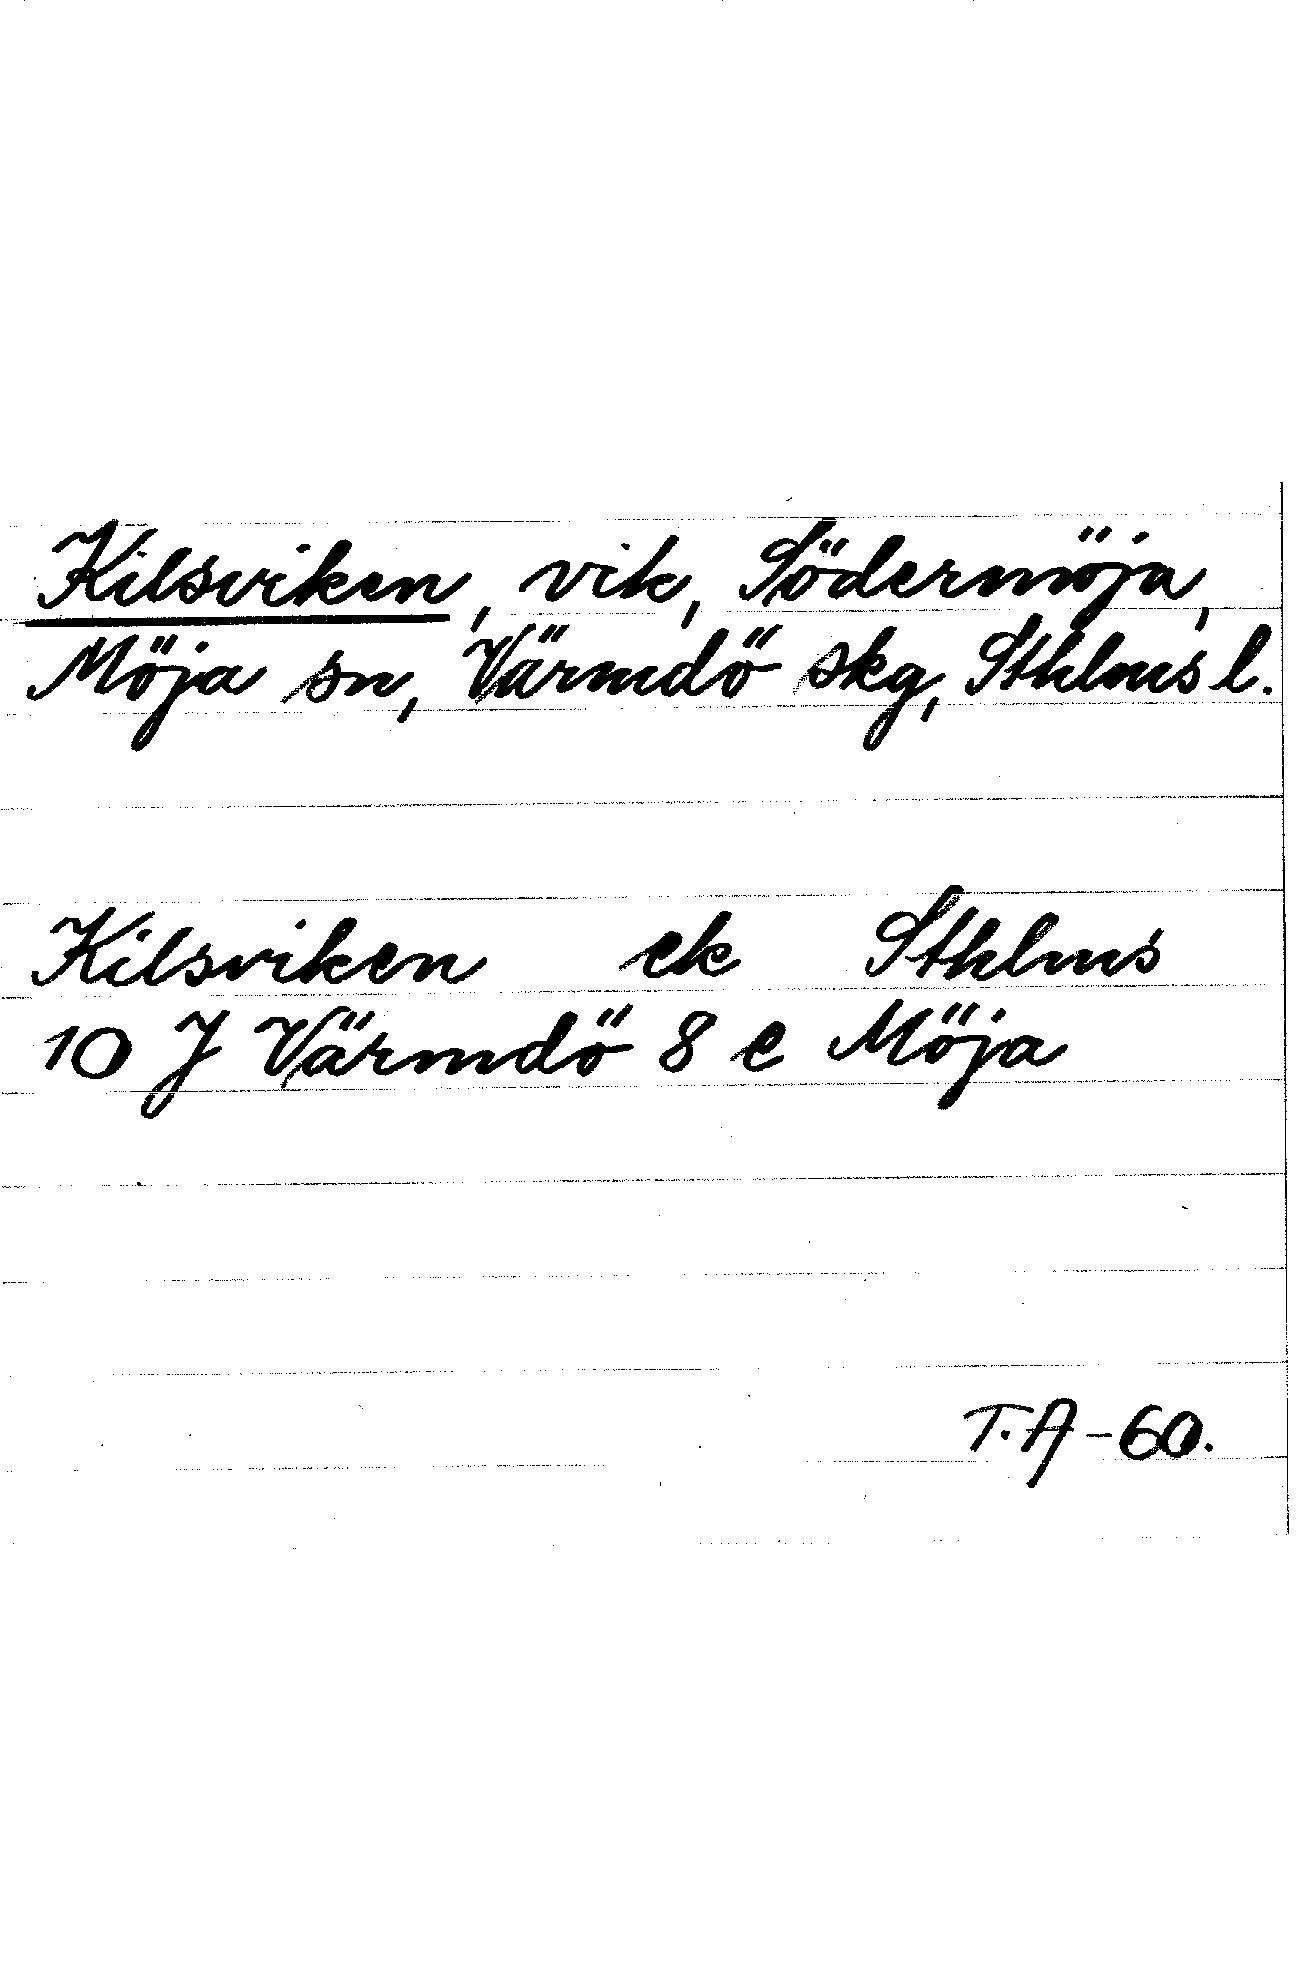 Kilsviken, vik, Södermöja,
Möja sn, Värmdö skg, Sthlms l.
Kilsviken ek Sthlms
10 J Värmdö 8 e Möja
T.A-60.